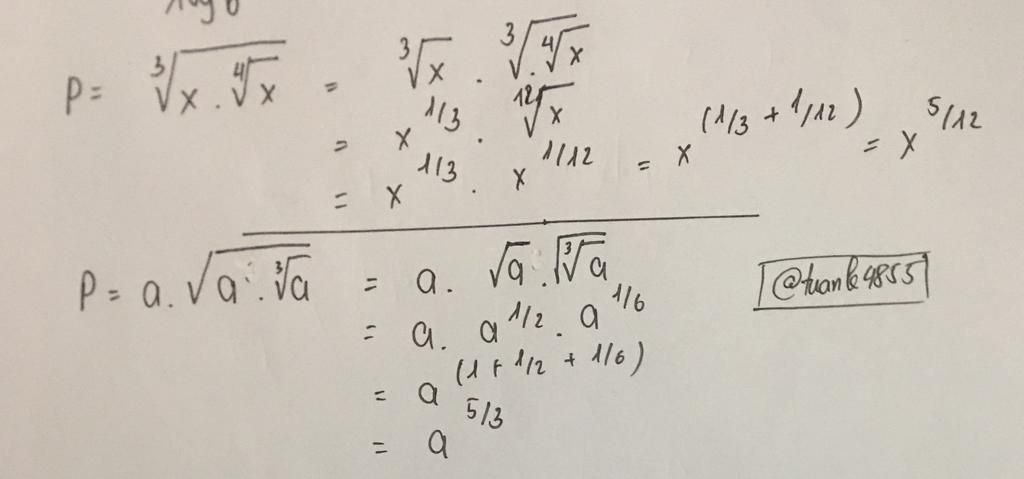 P = ∛(x . ∜x) = ∛x . ∛(∜x)
= x^(1/3) . ¹²√x
= x^(1/3) . x^(1/12) = x^(1/3 + 1/12) = x^(5/12)
P = a . √(a . ∛a) = a . √a . √(∛a)
= a . a^(1/2) . a^(1/6)
= a^(1 + 1/2 + 1/6)
= a^(5/3)
@tuank4855